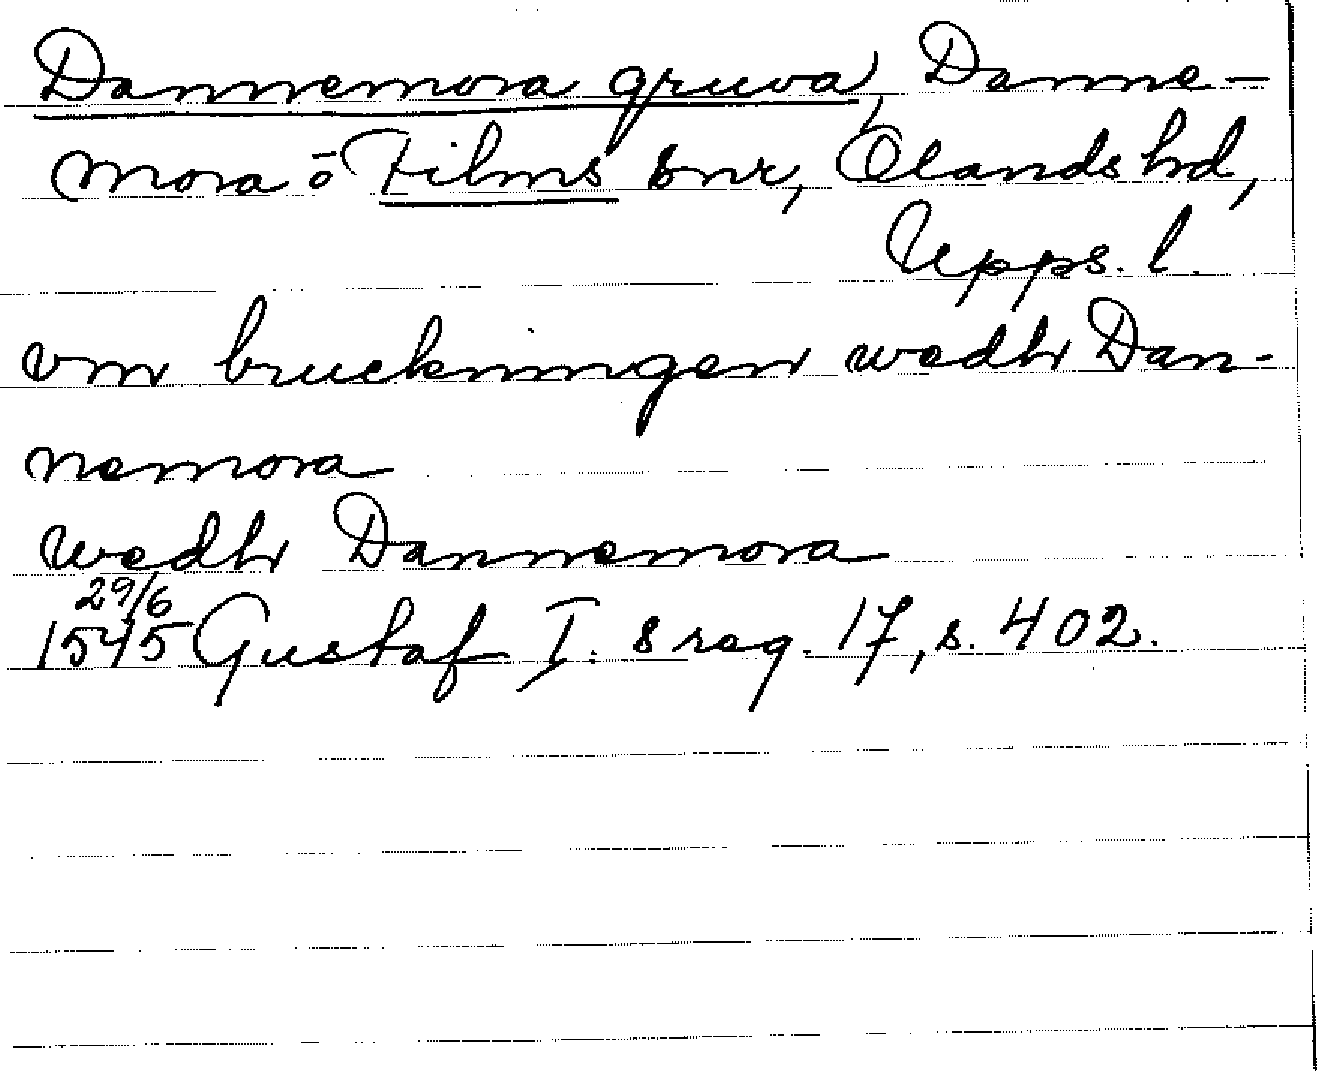 Dannemora gruva, Danne-
mora o Films snr, Olands hd,
Upps. l.
vm bruckningen wedh Dan-
nemora
wedh Dannemora
29/6
1545 Gustaf I:s reg. 17, s. 402.